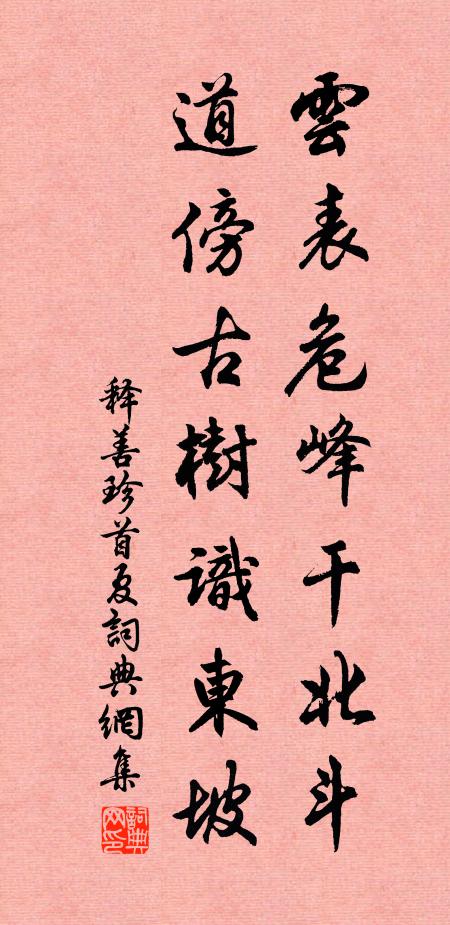 雲表危峰干北斗
道傍古樹識東坡
释善珍首夏詞典網集
詞典
网印